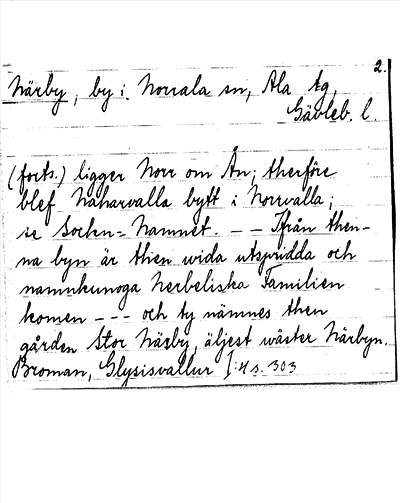 2.
Närby, by i Norrala sn, Ala tg,
Gävleb. l.
(forts.) ligger Norr om Ån; therföre
blef Naharvalla bytt i Norrvalla;
se Sockn=Namnet. -- Ifrån then-
na byn är then wida utspridda och
namnkunoga Herbeliska Familien
komen --- och ty nämnes then
gården Stor Näsby, äljest wäster Närbyn.
Broman, Glysisvallur I:4 s. 303